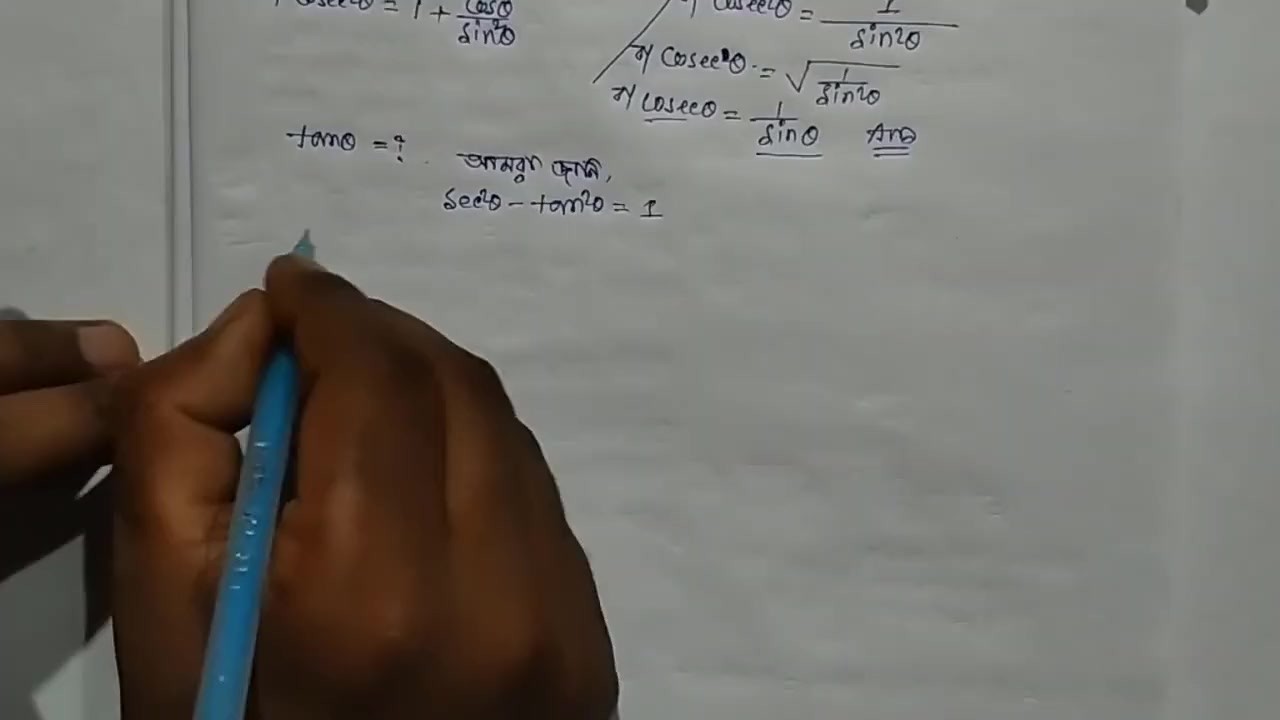 cosec²θ = 1 + cos²θ/sin²θ
cosec²θ = 1/sin²θ
বা cosec²θ = √1/sin²θ
বা cosecθ = 1/sinθ Ans
tanθ = ? আমরা জানি,
sec²θ - tan²θ = 1